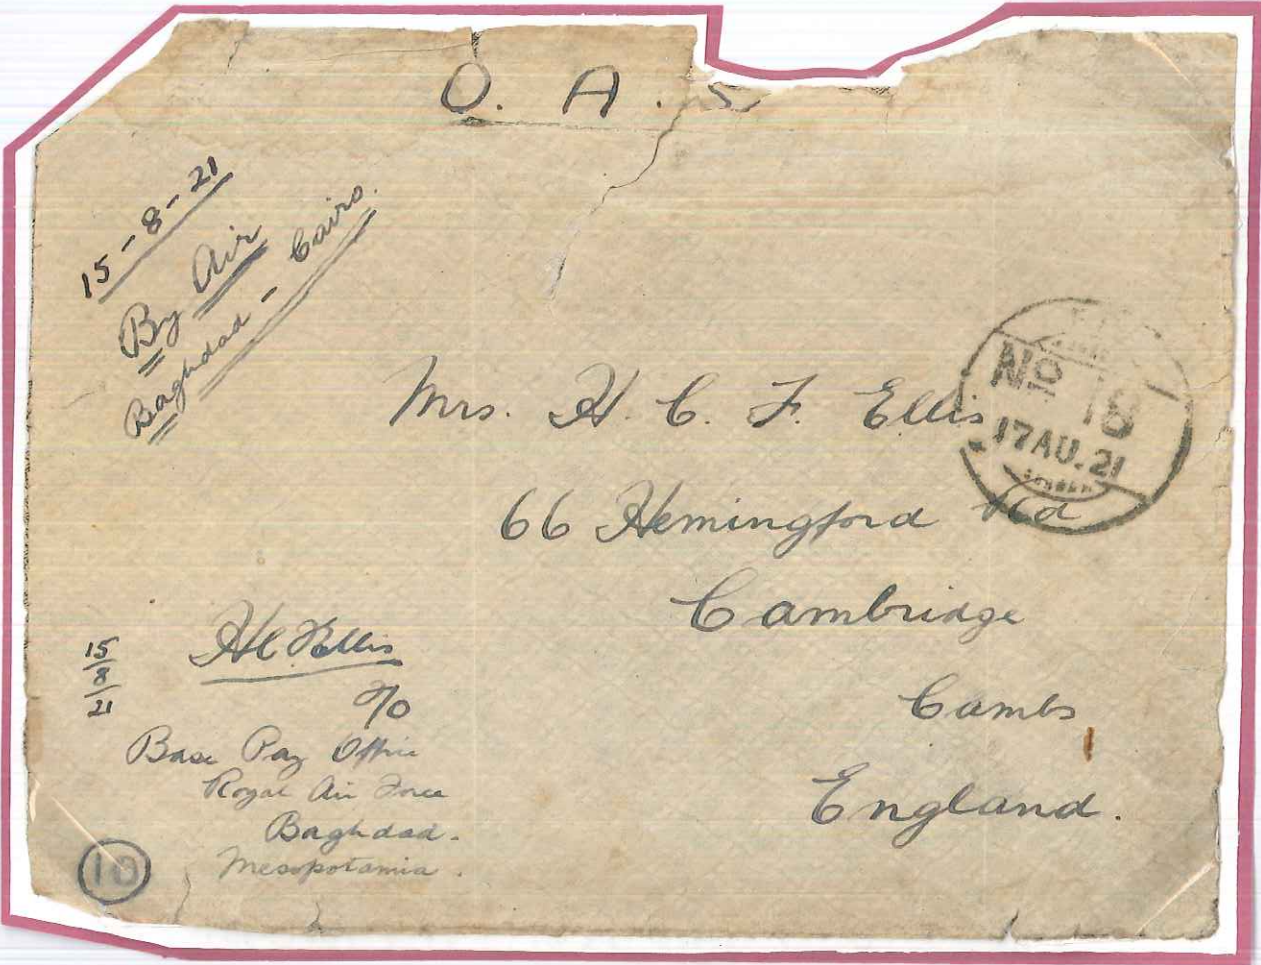 O. A. S
15-8-21
By Air
Baghdad - Cairo.
Mrs. H. C. F. Ellis
66 Hemingford Rd
Cambridge
Cambs
England.
No 18
17 AU. 21
15
8
21
HC F Ellis
c/o
Base Pay Office
Royal Air Force
Baghdad.
Mesopotamia.
10